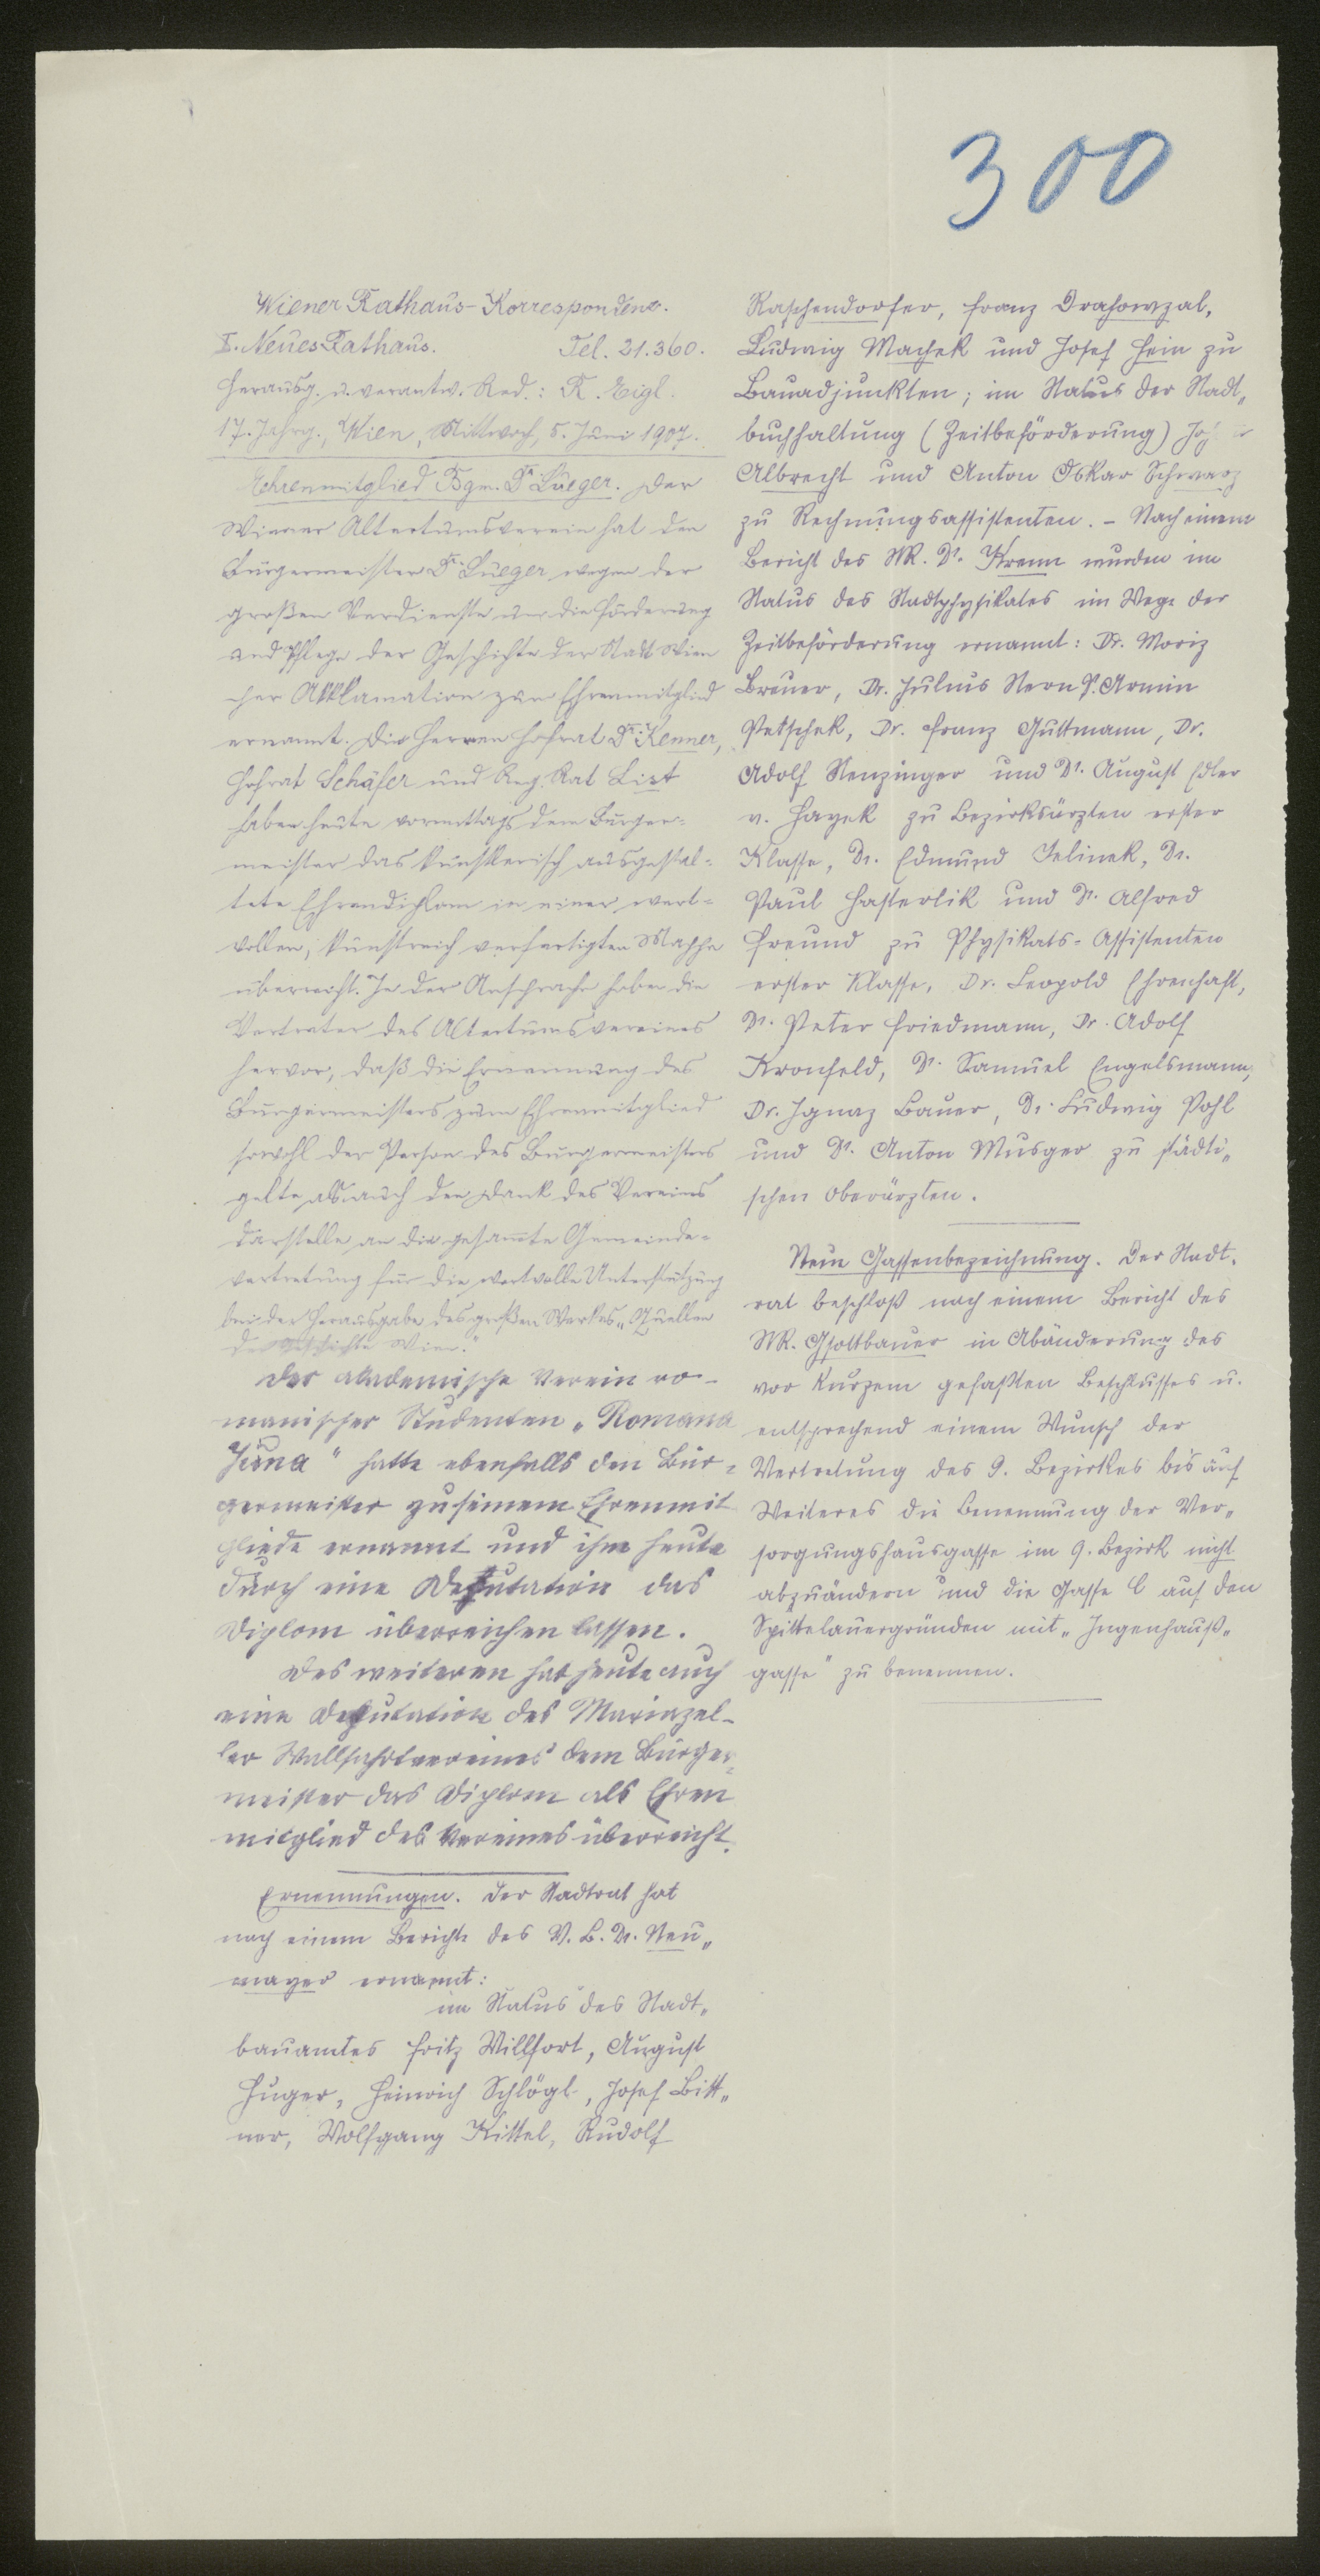 300
Wiener Rathaus-Korrespondenz.
I. Neues Rathaus. Tel. 21.360.
Herausg. u. verantw. Red.: R. Eigl.
17. Jahrg., Wien, Mittwoch, 5. Juni 1907.
Ehrenmitglied Bgm. Dr. Lueger. Der
Wiener Altertumsverein hat den
Bürgermeister Dr. Lueger wegen der
großen Verdienste um die Förderung
und Pflege der Geschichte der Stadt Wien
per Akklamation zum Ehrenmitglied
ernannt. Die Herren Hofrat Dr. Kenner,
Hofrat Schäfer und Reg. Rat List
haben heute vormittags dem Bürger=
meister das künstlerisch ausgestal=
tete Ehrendiplom in einer wert=
vollen, kunstreich verfertigten Mappe
überreicht. In der Ansprache hoben die
Vertreter des Altertumsvereines
hervor, daß die Ernennung des
Bürgermeisters zum Ehrenmitglied
sowohl der Person des Bürgermeisters
gelte als auch den Dank des Vereins
darstelle an die gesamte Gemeinde=
vertretung für die wertvolle Unterstützung
bei der Herausgabe des großen Werkes „Quellen
der Geschichte Wien."
Der akademische Verein ro-
manischer Studenten „Romana
Juna" hatte ebenfalls den Bür=
germeister zu seinem Ehrenmit
gliede ernannt und ihm heute
durch eine Deputation das
Diplom überreichen lassen.
Des weiteren hat heute auch
eine Deputation des Mariazel-
ler Wallfahrtvereines dem Bürger=
meister das Diplom als Ehren
mitglied des Vereines überreicht.
Ernennungen. Der Stadtrat hat
nach einem Berichte des V. B. Dr. Neu„
mayer ernannt:
im Status des Stadt„
bauamtes Fritz Willfort, August
Huger, Heinrich Schlögl, Josef Bitt„
ner, Wolfgang Kittel, Rudolf
Raschendorfer, Franz Drahowzal,
Ludwig Machek und Josef Hein zu
Bauadjunkten; im Status der Stadt„
buchhaltung (Zeitbeförderung)
Albrecht und Anton Oskar Schwarz
zu Rechnungsassistenten. – Nach einem
Bericht des StR. Dr. Krenn wurden im
Status des Stadtphysikates im Wege der
Zeitbeförderung ernannt: Dr. Moriz
Breuer, Dr. Julius Stern Dr. Armin
Petschek, Dr. Franz Guttmann, Dr.
Adolf Stenzinger und Dr. August Edler
v. Hayek zu Bezirksärzten erster
Klasse, Dr. Edmund Jelinek, Dr.
Paul Hasterlik und Dr. Alfred
Freund zu Physikats-Assistenten
erster Klasse, Dr. Leopold Ehrenhaft,
Dr. Peter Friedmann, Dr. Adolf
Kronfeld, Dr. Samuel Engelsmann,
Dr. Ignaz Bauer, Dr. Ludwig Pohl
und Dr. Anton Musger zu städti„
schen Oberärzten.
Neue Gassenbezeichnung. Der Stadt„
rat beschloß nach einem Bericht des
StR. Gsottbauer in Abänderung des
vor kurzem gefaßten Beschlusses u.
entsprechend einem Wunsch der
Vertretung des 9. Bezirkes bis auf
Weiteres die Benennung der Ver„
sorgungshausgasse im 9. Bezirk nicht
abzuändern und die Gasse C auf den
Spittelauergründen mit „Ingenhauß„
gasse" zu benennen.